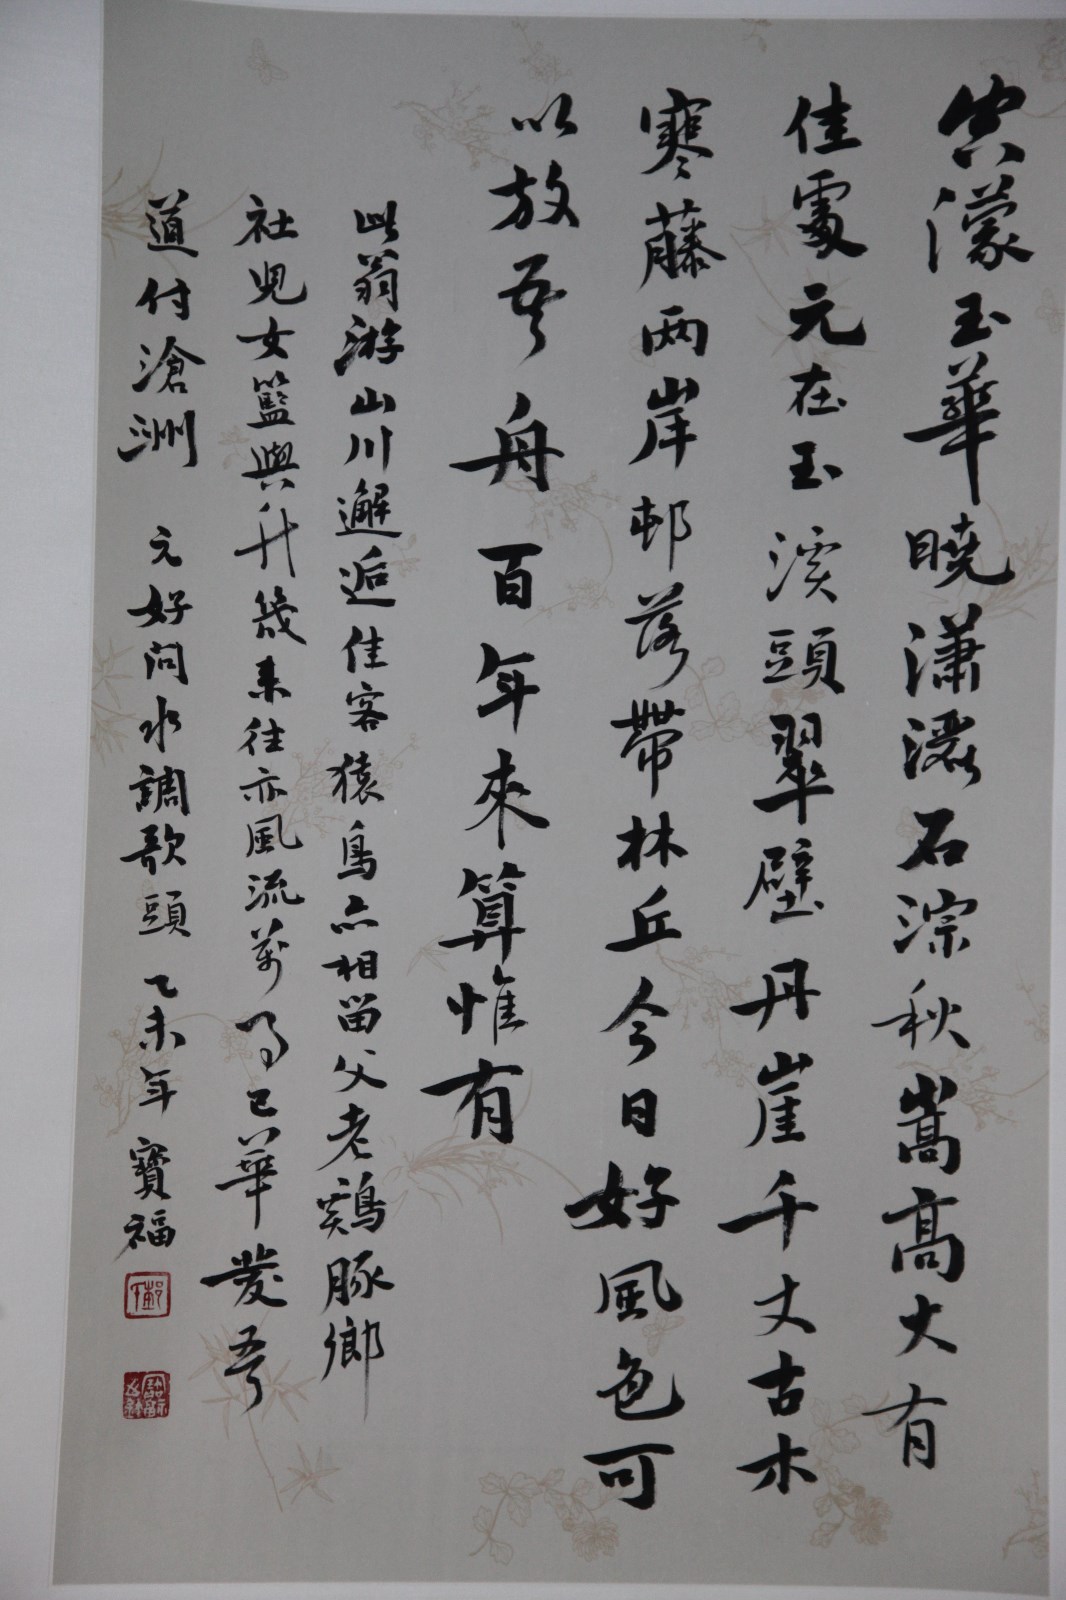 空濛玉華曉瀟灑石淙秋嵩高大有
佳處元在玉溪頭翠壁丹崖千丈古木
寒藤两岸邨落帶林丘今日好風色可
以放吾舟百年來算惟有
此翁游山川邂逅佳客猿鳥亦相留父老鷄豚鄉
社兒女籃輿竹幾來往亦風流萬事已華發吾
道付滄洲 元好问水調歌頭 乙未年 寶福